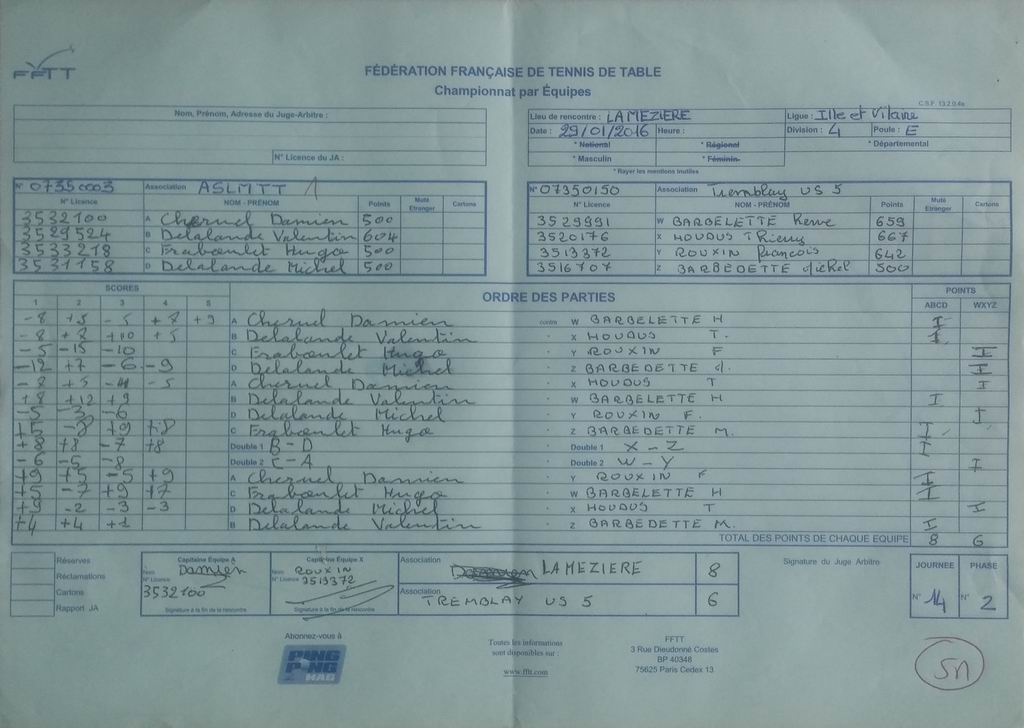 FFTT
FÉDÉRATION FRANÇAISE DE TENNIS DE TABLE
Championnat par Équipes
C.S.F. 13.2.0.4a
Nom, Prénom, Adresse du Juge-Arbitre :
N° Licence du JA :
Lieu de rencontre : LA MEZIERE
Ligue : Ille et Vilaine
Date : 29/01/2016 Heure :
Division : 4 Poule : E
* National * Régional * Départemental
* Masculin * Féminin
* Rayer les mentions inutiles
N° 07350003 Association ASLMTT 1
N° Licence NOM - PRÉNOM Points Muté Etranger Cartons
3532100 A Cheruel Damien 500
3529524 B Delalande Valentin 604
3533218 C Fraboulet Hugo 500
3531158 D Delalande Michel 500
N° 07350150 Association Tremblay US 5
N° Licence NOM - PRÉNOM Points Muté Etranger Cartons
3529991 W BARBELETTE Herve 659
3520176 X HOUDUS Thierry 667
3513372 Y ROUXIN francois 642
3516707 Z BARBEDETTE Michel 500
SCORES ORDRE DES PARTIES POINTS
1 2 3 4 5 ABCD WXYZ
-8 +5 -5 +7 +9 A Cheruel Damien contre W BARBELETTE H I
-8 +7 +10 +5 B Delalande Valentin X HOUDUS T. I
-5 -15 -10 C Fraboulet Hugo Y ROUXIN F I
-12 +7 -6 -9 D Delalande Michel Z BARBEDETTE I
-8 +5 -11 -5 A Cheruel Damien X HOUDUS T I
+8 +12 +9 B Delalande Valentin W BARBELETTE H I
-5 -3 -6 D Delalande Michel Y ROUXIN F. I
+5 -8 +9 +8 C Fraboulet Hugo Z BARBEDETTE M. I
+8 +8 -7 +8 Double 1 B - D Double 1 X - Z I
-6 -5 -8 Double 2 C - A Double 2 W - Y I
+9 +5 -5 +9 A Cheruel Damien Y ROUXIN F I
+5 -7 +9 +7 C Fraboulet Hugo W BARBELETTE H I
+9 -2 -3 -3 D Delalande Michel X HOUDUS T I
+4 +4 +1 B Delalande Valentin Z BARBEDETTE M. I
TOTAL DES POINTS DE CHAQUE ÉQUIPE 8 6
Réserves
Réclamations
Cartons
Rapport JA
Capitaine Équipe A
Nom Damien
N° Licence
3532100
Signature à la fin de la rencontre
Capitaine Équipe X
Nom ROUXIN
N° Licence 3513372
Signature à la fin de la rencontre
Association LA MEZIERE 8
Association TREMBLAY US 5 6
Signature du Juge Arbitre
JOURNÉE PHASE
N° 14 N° 2
Abonnez-vous à
PING PONG MAG
Toutes les informations
sont disponibles sur :
www.fftt.com
FFTT
3 Rue Dieudonné Costes
BP 40348
75625 Paris Cedex 13